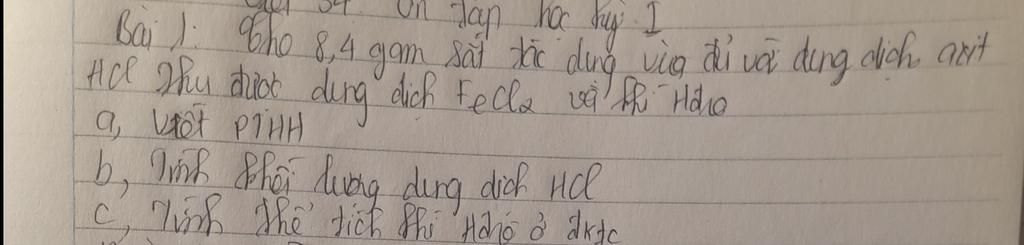 Tiết 34 Ôn tập học kỳ I
Bài 1: Cho 8,4 gam sắt tác dụng vừa đủ với dung dịch axit
HCl thu được dung dịch FeCl2 và khí Hđro
a, Viết PTHH
b, Tính khối lượng dung dịch HCl
c, Tính thể tích khí Hđrô ở đktc